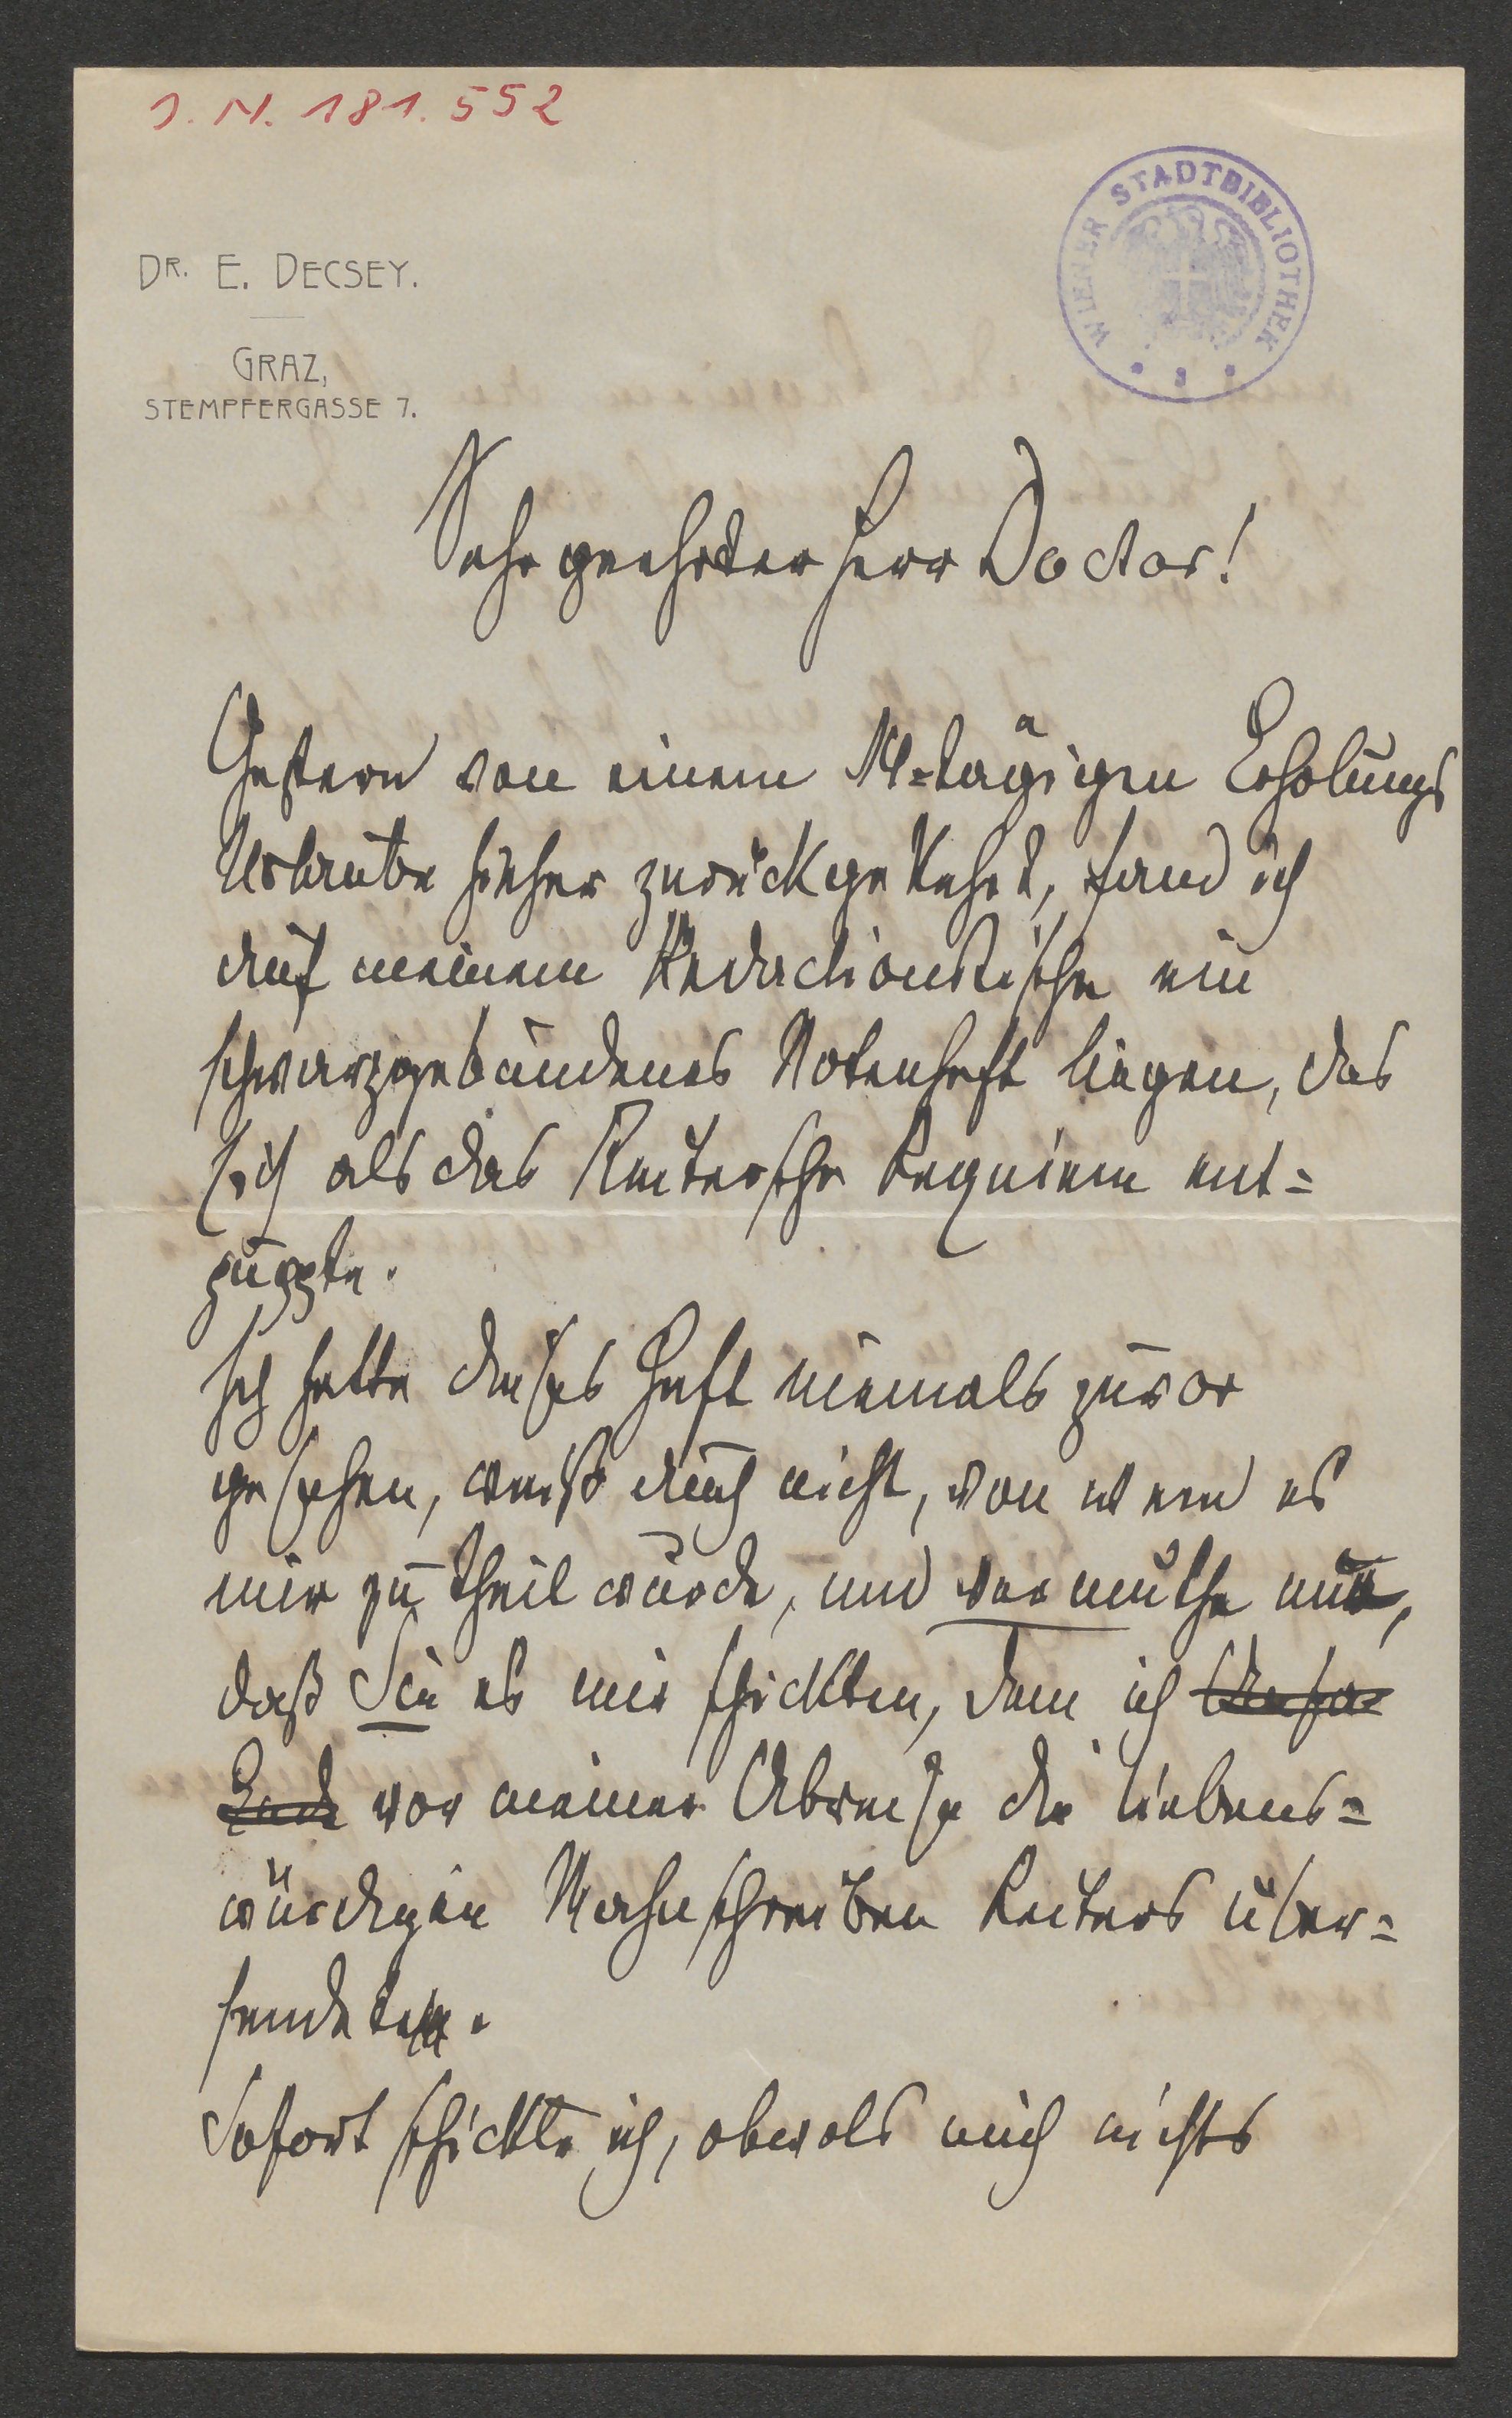 J. N. 181.552
WIENER STADTBIBLIOTHEK
DR. E. DECSEY.
GRAZ,
STEMPFERGASSE 7.
Sehr geehrter Herr Doctor!
Gestern von einem 14-tägigen Erholungs
Urlaube hieher zurückgekehrt, fand ich
auf meinem Redactionstische ein
schwarzgebundenes Notenheft liegen, das
sich als das Reitersche Requiem ent=
puppte.
Ich hatte dieses Heft niemals zuvor
gesehen, weiß auch nicht, von wem es
mir zu theil wurde, und vermuthe nur,
daß Sie es mir schickten, dem ich
vor meiner Abreise die liebens=
würdigen Mahnschreiben Reiters über=
sendete.
Sofort schickte ich, obwol mich nichts